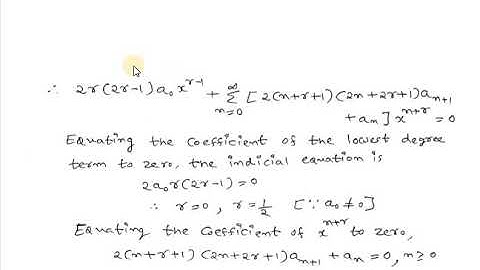 ∴ 2r(2r-1)a₀x^{r-1} + ∑_{n=0}^{∞} [2(n+r+1)(2n+2r+1)a_{n+1}
+a_n]x^{n+r}=0
Equating the coefficient of the lowest degree
term to zero, the indicial equation is
2a₀r(2r-1)=0
∴ r=0, r=1/2 [∵ a₀≠0]
Equating the Coefficient of x^{n+r} to zero,
2(n+r+1)(2n+2r+1)a_{n+1}+a_n=0, n≥0